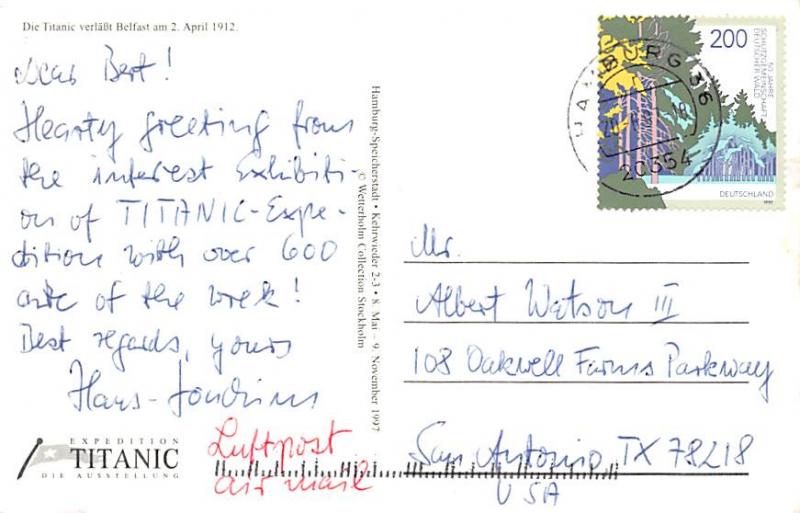 Die Titanic verläßt Belfast am 2. April 1912.
Dear Bert!
Hearty greeting from
the interest Exhibiti-
on of TITANIC-Expe-
dition with over 600
of the wrek!
Best regards, yours
Hans-Joachim
EXPEDITION
TITANIC
DIE AUSSTELLUNG
Hamburg-Speicherstadt • Kehrwieder 2-3 • 8. Mai – 9. November 1997
© Wetterholm Collection Stockholm
Luftpost
air mail
HAMBURG 36
20354
200
50 JAHRE
SCHUTZGEMEINSCHAFT
DEUTSCHER WALD
DEUTSCHLAND
1997
Mr.
Albert Watson III
108 Oakwell Farms Parkway
San Antonio, TX 78218
USA